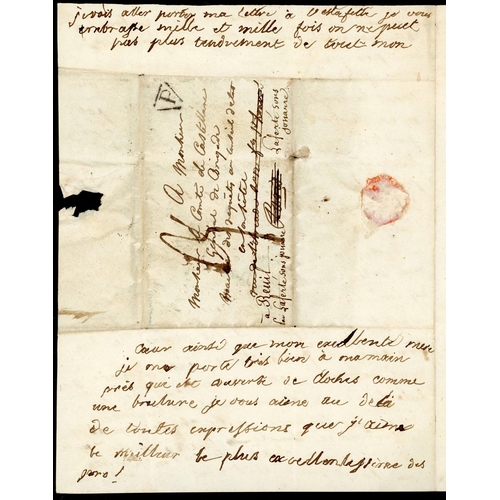 je vais aller porter ma lettre à l'estafette je vous
embrasse mille et mille fois on ne peut
pas plus tendrement de tout mon
P
A Monsieur
Monsieur le Comte de Castellane
Général de Brigade
Maitre des requêtes au conseil d'état
à Reuil
La ferté sous
jouarre
par Laferté sous jouarre
cœur ainsi que mon excellente mere
je me porte tres bien à ma main
près qui est couverte de cloches comme
une brulure je vous aime au delà
de toutes expressions que j'aime
le meilleur le plus excellent